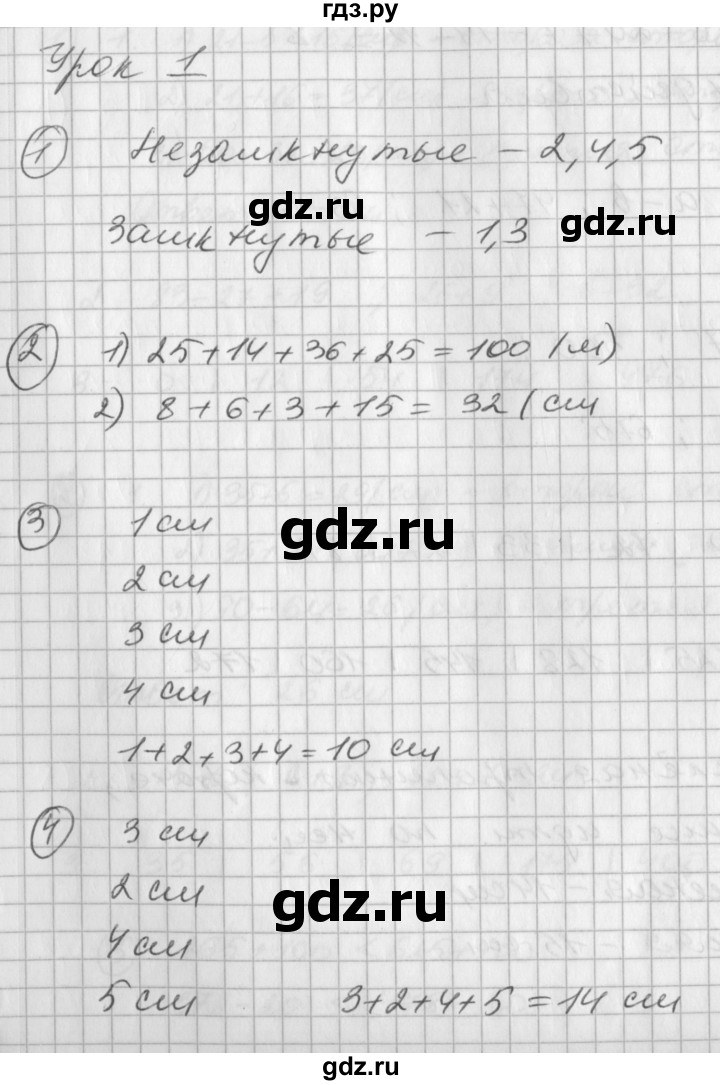 гдз.ру
Урок 1
1 Незамкнутые - 2,4,5
gdz.ru
Замкнутые - 1,3
gdz.ru
2 1) 25+14+36+25=100 (м)
2) 8+6+3+15= 32 (см
3 1 см
gdz.ru
2 см
3 см
4 см
1+2+3+4=10 см
4 3 см
2 см
gdz.ru
4 см
5 см 3+2+4+5=14 см
gdz.ru